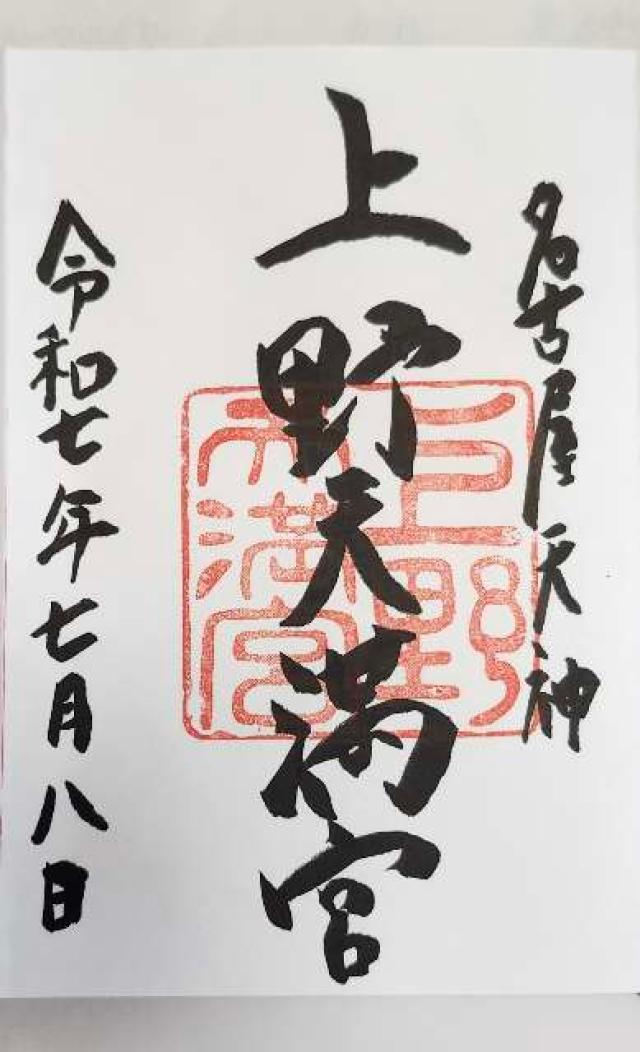 名古屋天神
上野天満宮
上野天満宮
令和七年七月八日